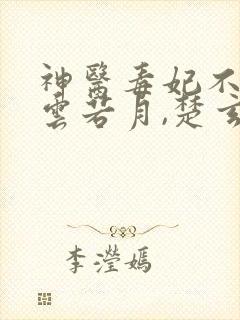 神醫毒妃不
雲若月,楚玄
李瀅嫣